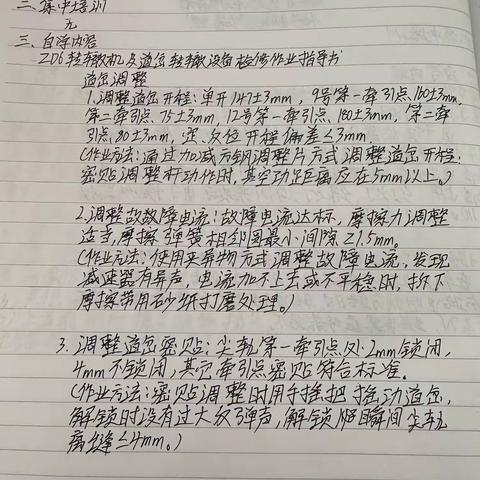 二、集中培训
无
三、自学内容
ZD6转辙机及道岔转辙设备检修作业指导书
道岔调整
1.调整道岔开程:单开147±3mm,9号第一牵引点160±3mm,
第二牵引点75±3mm,12号第一牵引点180±3mm,第二牵
引点80±3mm,定、反位开程偏差≤3mm.
(作业方法:通过加减方钢调整片方式调整道岔开程;
密贴调整杆动作时,其空动距离应在5mm以上。)
2.调整故故障电流:故障电流达标,摩擦力调整
适当,摩擦弹簧相邻圈最小间隙≥1.5mm。
(作业方法:使用夹异物方式调整故障电流,发现
减速器有异声,电流加不上去或不平稳时,拆下
摩擦带用砂纸打磨处理。)
3.调整道岔密贴:尖轨第一牵引点处2mm锁闭,
4mm不锁闭,其它牵引点密贴符合标准。
(作业方法:密贴调整时用手摇把摇动道岔,
解锁时没有过大反弹声,解锁瞬间尖轨
离缝≤4mm。)